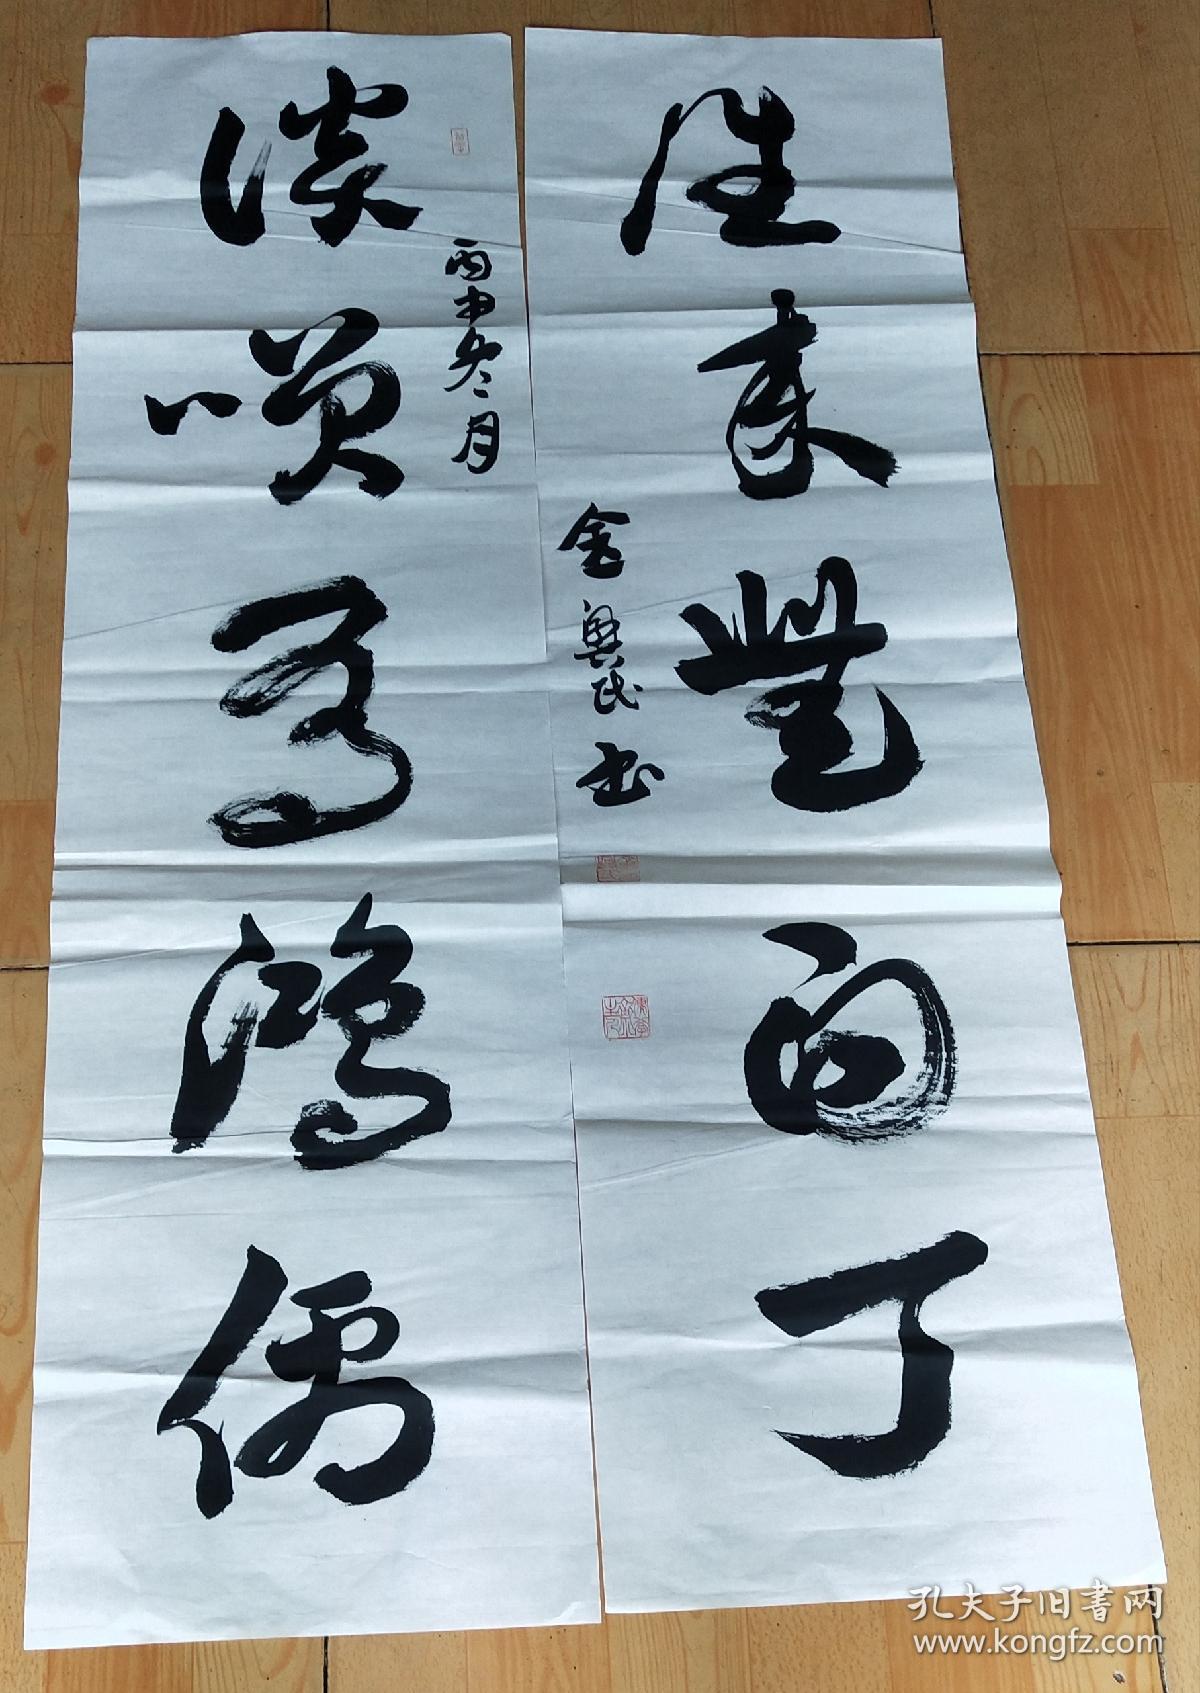 談笑有鴻儒
丙申冬月
往來無白丁
金興民书
孔夫子旧书网
www.kongfz.com